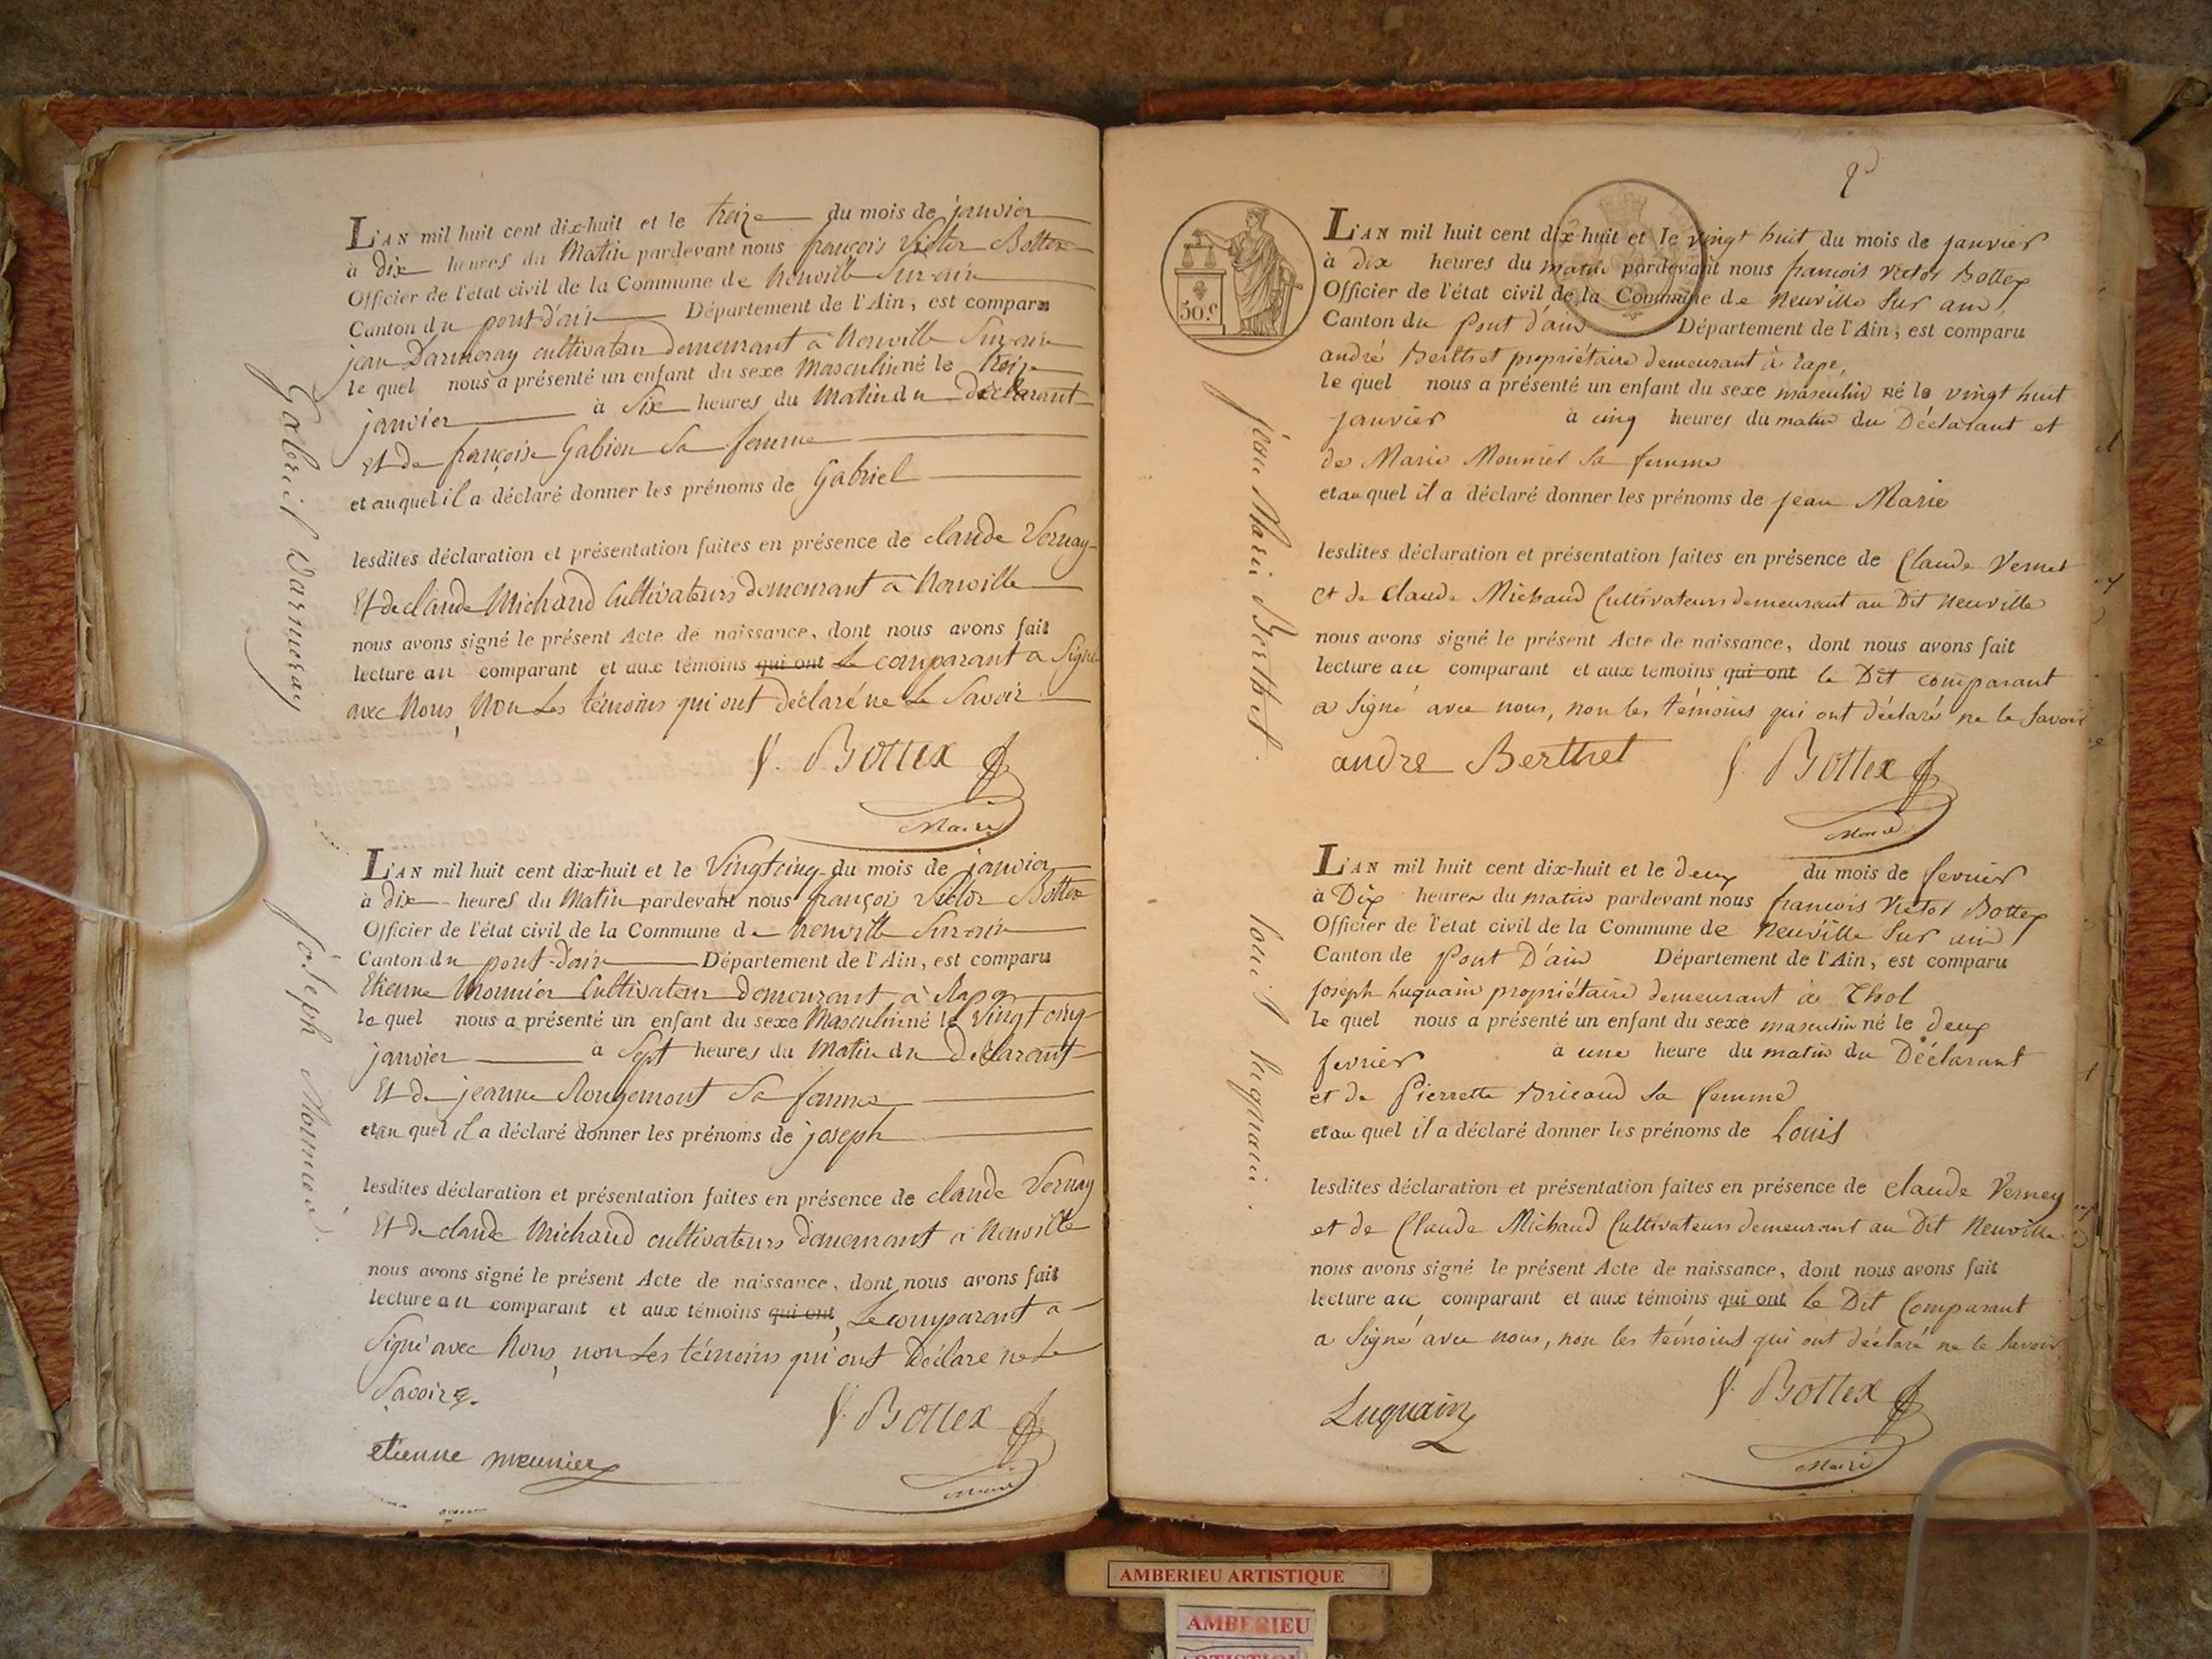 L'AN mil huit cent dix-huit et le treize du mois de janvier
à dix heures du Matin pardevant nous françois Victor Bottex
Officier de l'état civil de la Commune de Neuville Sur-ain
Canton du pont-d'ain Département de l'Ain, est comparu
jean Darmeray cultivateur demeurant à Neuville Sur-ain
le quel nous a présenté un enfant du sexe Masculin né le treize
janvier à Six heures du Matin du Déclarant
Et de françoise Gabion Sa femme
et auquel il a déclaré donner les prénoms de Gabriel
lesdites déclaration et présentation faites en présence de claude Vernay
Et de claude Michaud Cultivateurs demeurant à Neuville
nous avons signé le présent Acte de naissance, dont nous avons fait
lecture au comparant et aux témoins qui ont Le comparant a Signé
avec Nous, Non Les témoins qui ont déclaré ne Le Savoir
f. Bottex
Maire
Gabriel Darmeray
L'AN mil huit cent dix-huit et le Vingt cinq du mois de janvier
à dix heures du Matin pardevant nous françois Victor Bottex
Officier de l'état civil de la Commune de Neuville Sur-ain
Canton du pont-d'ain Département de l'Ain, est comparu
Etienne Mounier Cultivateur demeurant à Rape
le quel nous a présenté un enfant du sexe Masculin né le Vingt cinq
janvier à Sept heures du Matin du Déclarant
Et de jeanne Rougemont Sa femme
et au quel il a déclaré donner les prénoms de joseph
lesdites déclaration et présentation faites en présence de claude Vernay
Et de claude Michaud cultivateurs demeurant à Neuville
nous avons signé le présent Acte de naissance, dont nous avons fait
lecture au comparant et aux témoins qui ont, Le comparant a
Signé avec Nous, non Les témoins qui ont Déclaré ne Le
Savoir
f. Bottex
etienne meunier
Maire
joseph Mounier
50.c
L'AN mil huit cent dix-huit et le vingt huit du mois de janvier
à dix heures du matin pardevant nous francois Victor Bottex
Officier de l'état civil de la Commune de Neuville Sur ain
Canton du Pont d'ain Département de l'Ain, est comparu
andré Berthet propriétaire demeurant à rape,
le quel nous a présenté un enfant du sexe masculin né le vingt huit
janvier à cinq heures du matin du Déclarant et
de Marie Mounier Sa femme
et au quel il a déclaré donner les prénoms de jean Marie
lesdites déclaration et présentation faites en présence de Claude Vernet
et de Claude Michaud Cultivateurs demeurant au Dit Neuville
nous avons signé le présent Acte de naissance, dont nous avons fait
lecture au comparant et aux témoins qui ont le Dit comparant
a Signé avec nous, non les témoins qui ont déclaré ne le Savoir
andre Berthet f. Bottex
Maire
jean Marie Berthet
L'AN mil huit cent dix-huit et le deux du mois de fevrier
à Dix heures du matin pardevant nous francois Victor Bottex
Officier de l'état civil de la Commune de Neuville Sur ain
Canton de Pont D'ain Département de l'Ain, est comparu
joseph Luquain propriétaire demeurant à Thol
le quel nous a présenté un enfant du sexe masculin né le deux
fevrier à une heure du matin du Déclarant
et de Pierrette Bricaud Sa femme
et au quel il a déclaré donner les prénoms de Louis
lesdites déclaration et présentation faites en présence de claude Verney
et de Claude Michaud Cultivateurs demeurant au Dit Neuville
nous avons signé le présent Acte de naissance, dont nous avons fait
lecture au comparant et aux témoins qui ont le Dit Comparant
a Signé avec nous, non les témoins qui ont déclaré ne le Savoir
Luquain f. Bottex
Maire
louis luquain
AMBERIEU ARTISTIQUE
AMBERIEU
ARTISTIQUE